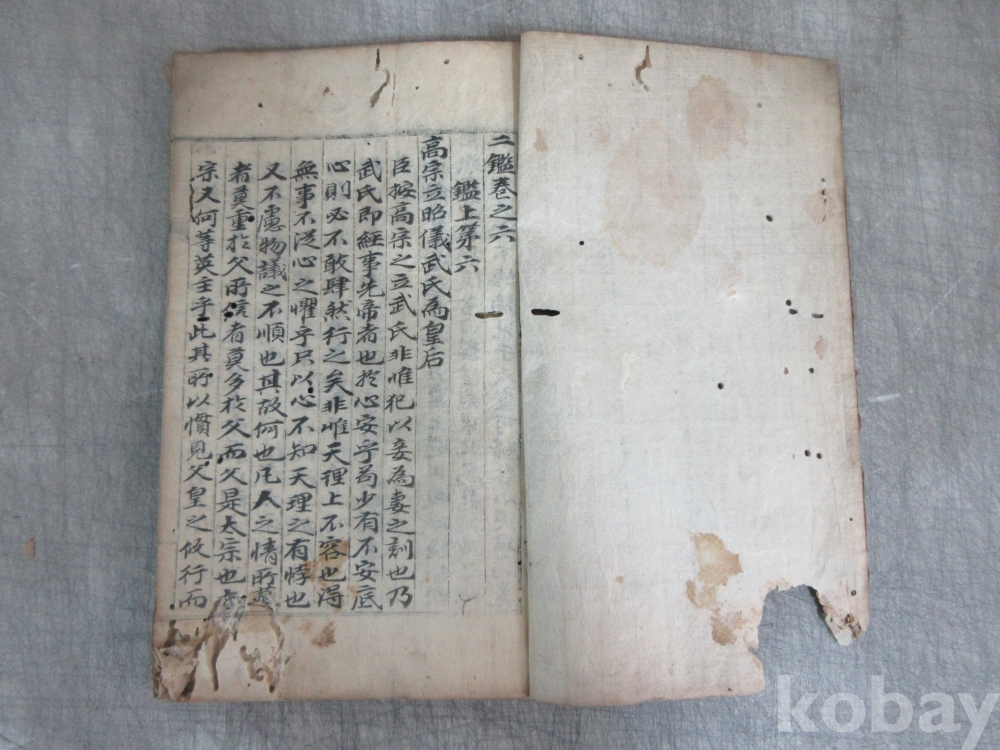 二鑑卷之六
鑑上第六
高宗立昭儀武氏為皇后
臣按高宗之立武氏非惟犯以妾為妻之訓也乃
武氏即經事先帝者也於心安乎苟少有不安底
心則必不敢肆然行之矣非惟天理上不容也得
無事不從心之懼乎只以心不知天理之有悖也
又不慮物議之不順也其故何也凡人之情所
者莫重於父所信者莫多於父而父是太宗也
宗又何等英主乎此其所以慣見父皇之攸行而
kobay